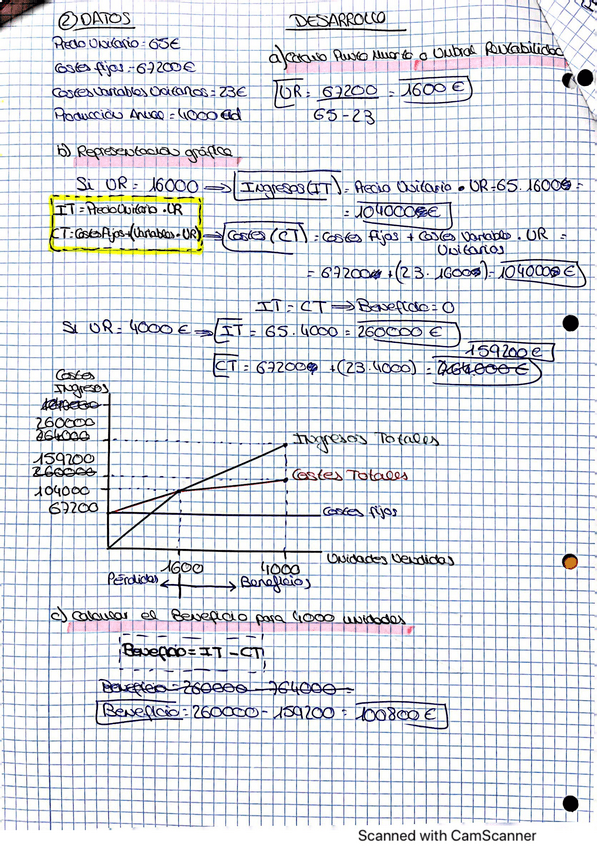 ② DATOS
DESARROLLO
Precio Unitario = 65€
Costes fijos = 67200€
Costes Variables Unitarios = 23€
Producción Anual = 4000 ud
a) Calcular Punto Muerto o Umbral Rentabilidad
UR = 67200 / 65-23 = 1600 €
b) Representación gráfica
Si UR = 16000 ⇒ Ingresos (IT) = Precio Unitario • UR = 65 · 1600 =
= 104000 €
IT = Precio Unitario · UR
CT = Costes Fijos + (Variables · UR)
→ Costes (CT) = Costes Fijos + Costes Variables Unitarios · UR =
= 67200 + (23 · 1600) = 104000 €
IT = CT ⇒ Beneficio = 0
Si UR = 4000 € ⇒ IT = 65 · 4000 = 260000 €
159200 €
CT = 67200 + (23 · 4000) = 264000 €
Costes
Ingresos
260000
264000
159200
260000
104000
67200
Ingresos Totales
Costes Totales
Costes fijos
Unidades Vendidas
1600
4000
Pérdidas ← → Beneficios
c) Calcular el Beneficio para 4000 unidades
Beneficio = IT - CT
Beneficio = 260000 - 264000 =
Beneficio = 260000 - 159200 = 100800 €
Scanned with CamScanner